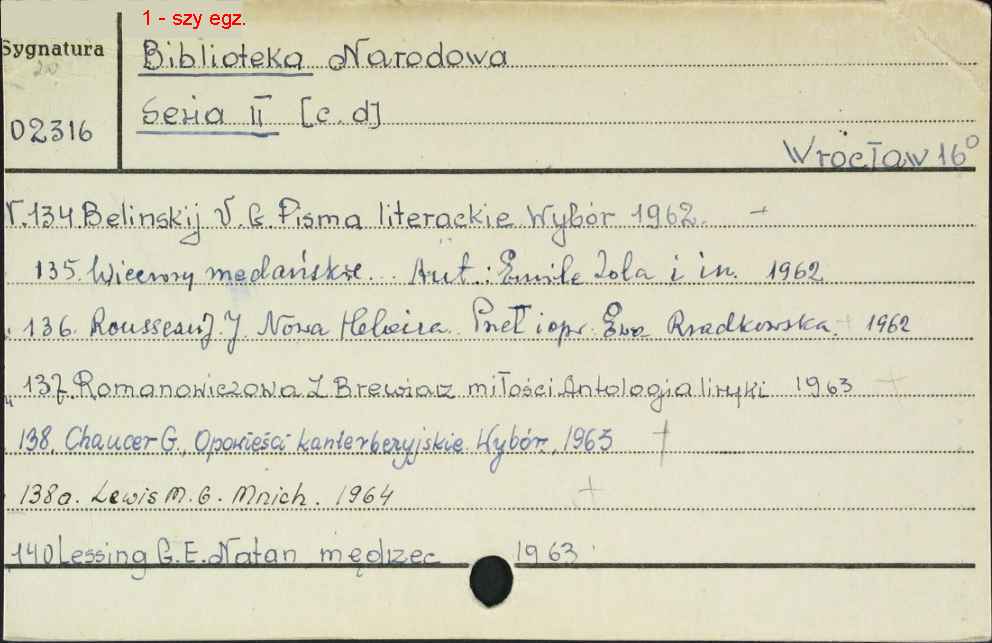 1 - szy egz.
Sygnatura
20
02316
Biblioteka Narodowa
Seria II [c. d]
Wrocław 16°
N. 134. Belinskij V. G. Pisma literackie. Wybór 1962.
135. Wieczory medańskie... Aut.: Emile Zola i in. 1962
136. Rousseau J. J. Nowa Heloiza. Przeł i opr. Ewa Rzadkowska. 1962
137. Romanowiczowa Z Brewiarz miłości. Antologia liryki 1963
138. Chaucer G., Opowieści kanterberyjskie. Wybór., 1963
138a. Lewis M. G. Mnich. 1964
140 Lessing G. E. Natan mędrzec 1963